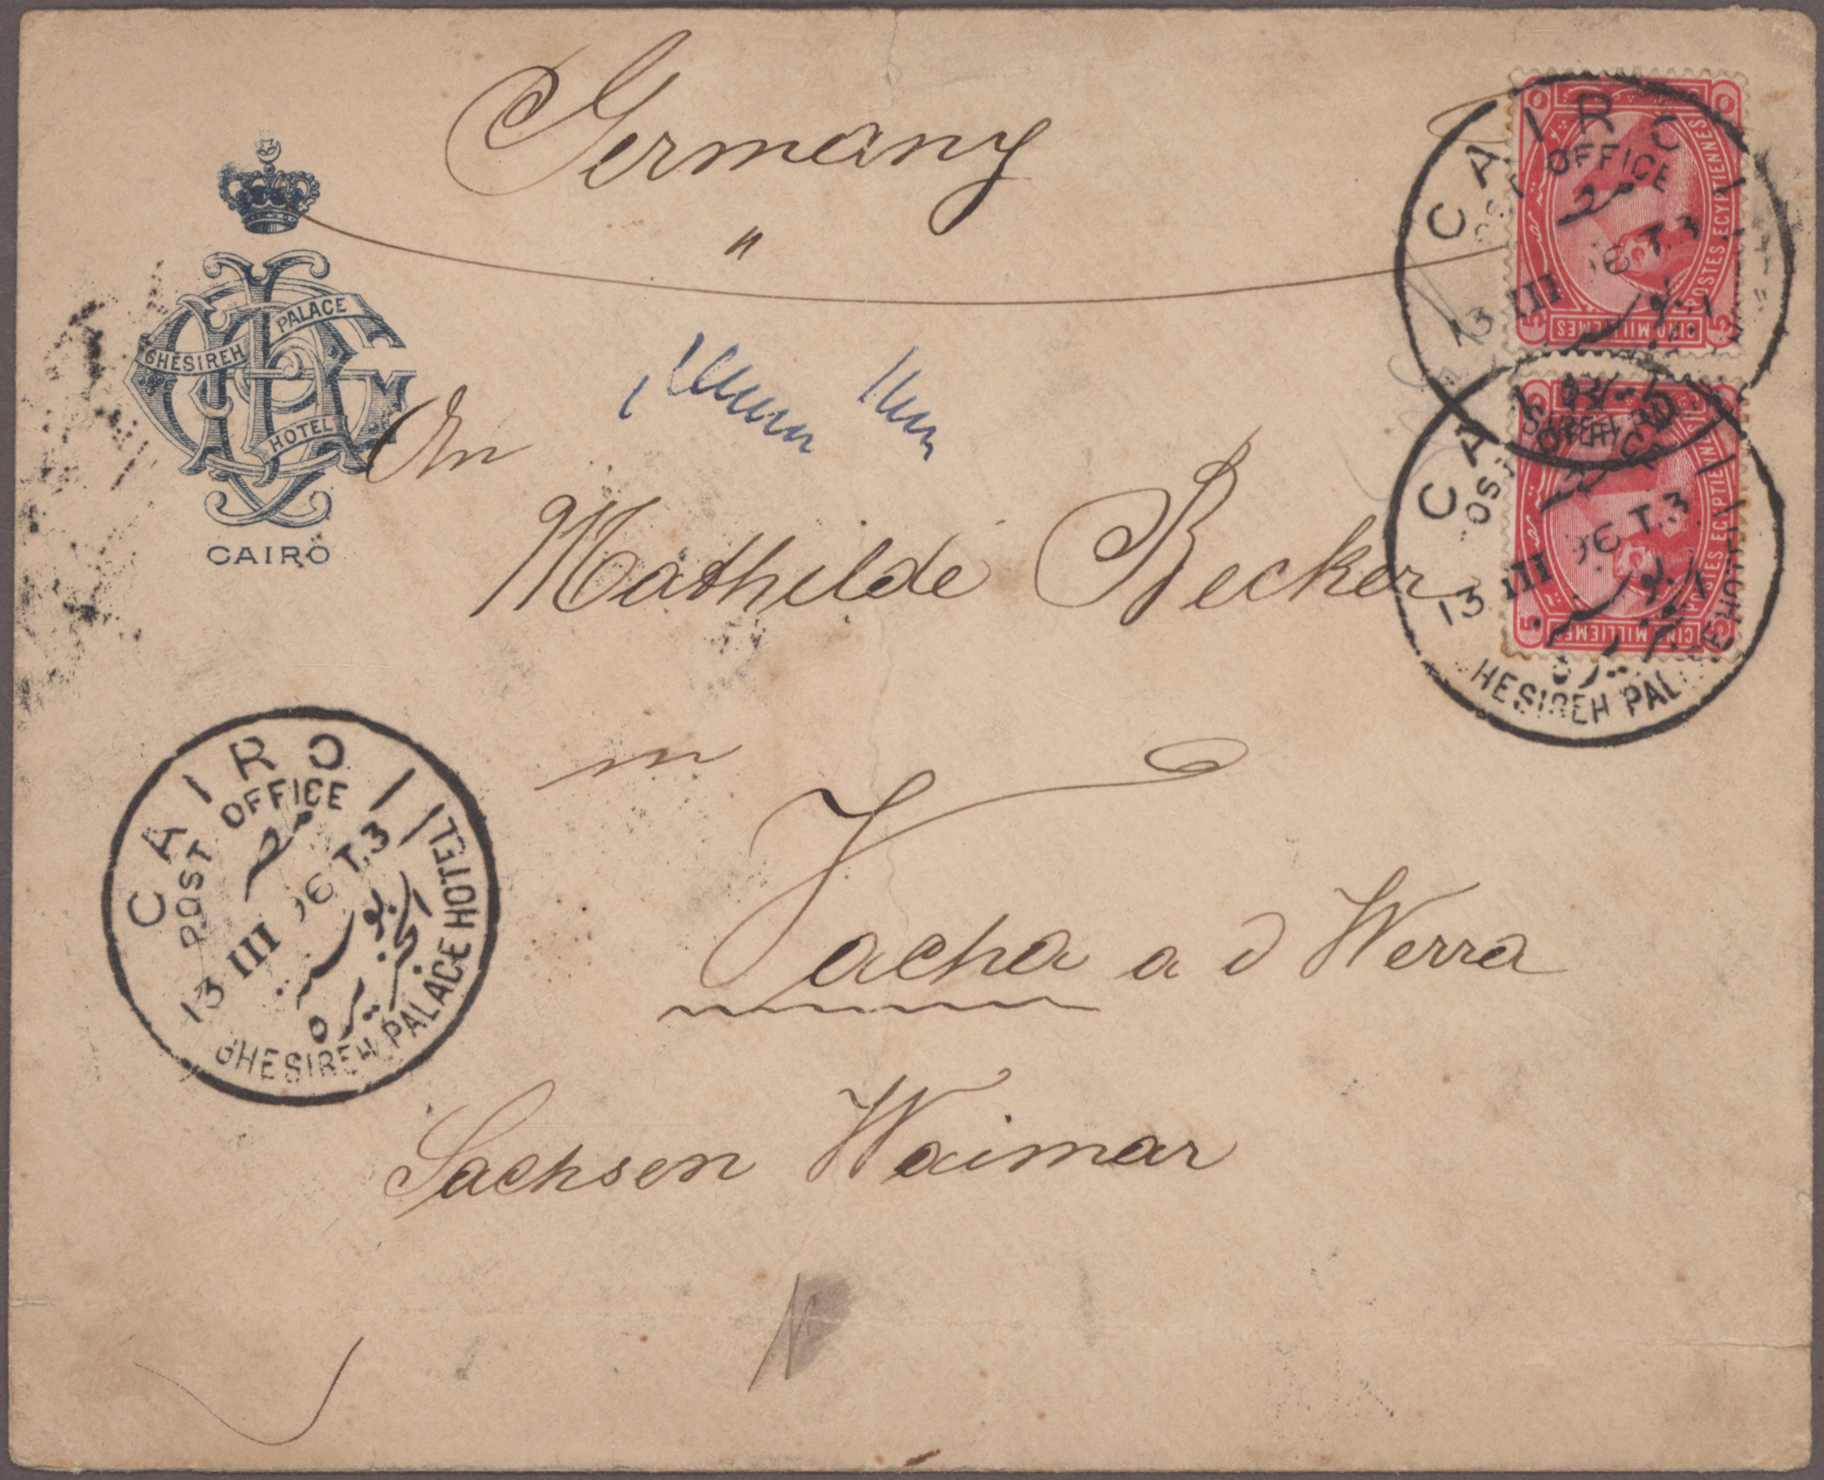 Germany
"
GHESIREH
PALACE
HOTEL
CAIRO
An
Mathilde Becker
in
Vacha a d Werra
Sachsen Waimar
CAIRO
POST OFFICE
مصر
13 III 96 T.3
GHESIREH PALACE HOTEL
CAIRO
POST OFFICE
مصر
13 III 96 T.3
POSTES EGYPTIENNES
CINQ MILLIEMES
5 5
CAI
POST OFFICE
13 III 96 T.3
GHESIREH PALACE HOTEL
POSTES EGYPTIENNES
CINQ MILLIEMES
5 5